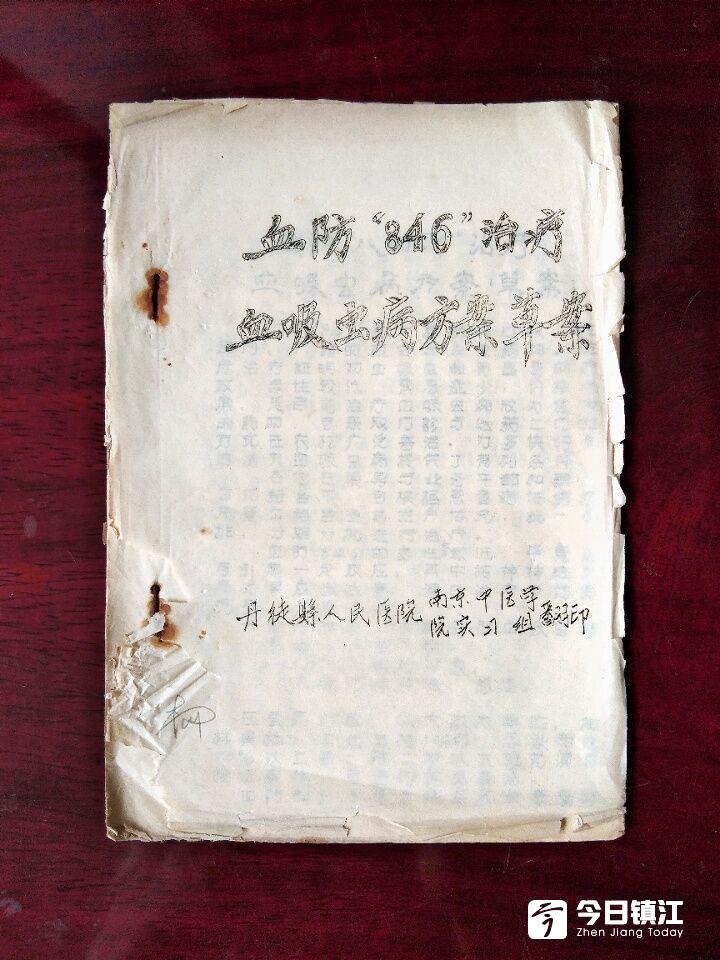 血防“846”治疗
血吸虫病方案草案
丹徒縣人民医院 南京中医学
院实习组翻印
今日镇江
Zhen Jiang Today